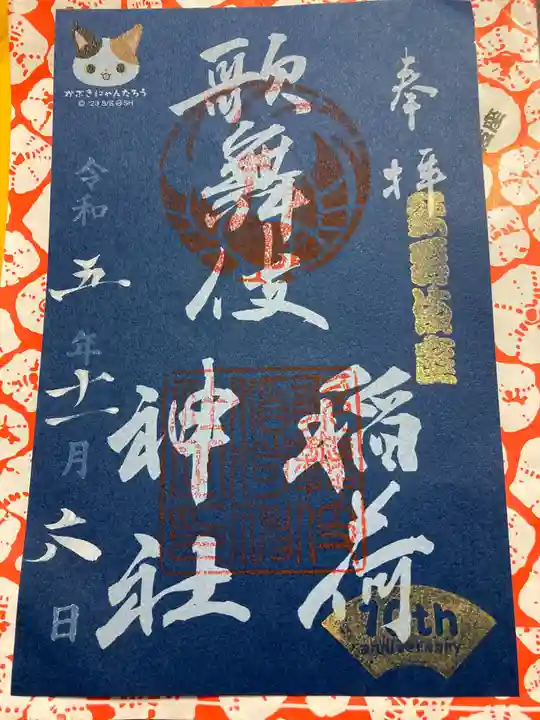 奉拝
歌舞伎座
歌舞伎
稲荷
神社
令和五年十一月六日
かぶきにゃんたろう
10th
anniversary